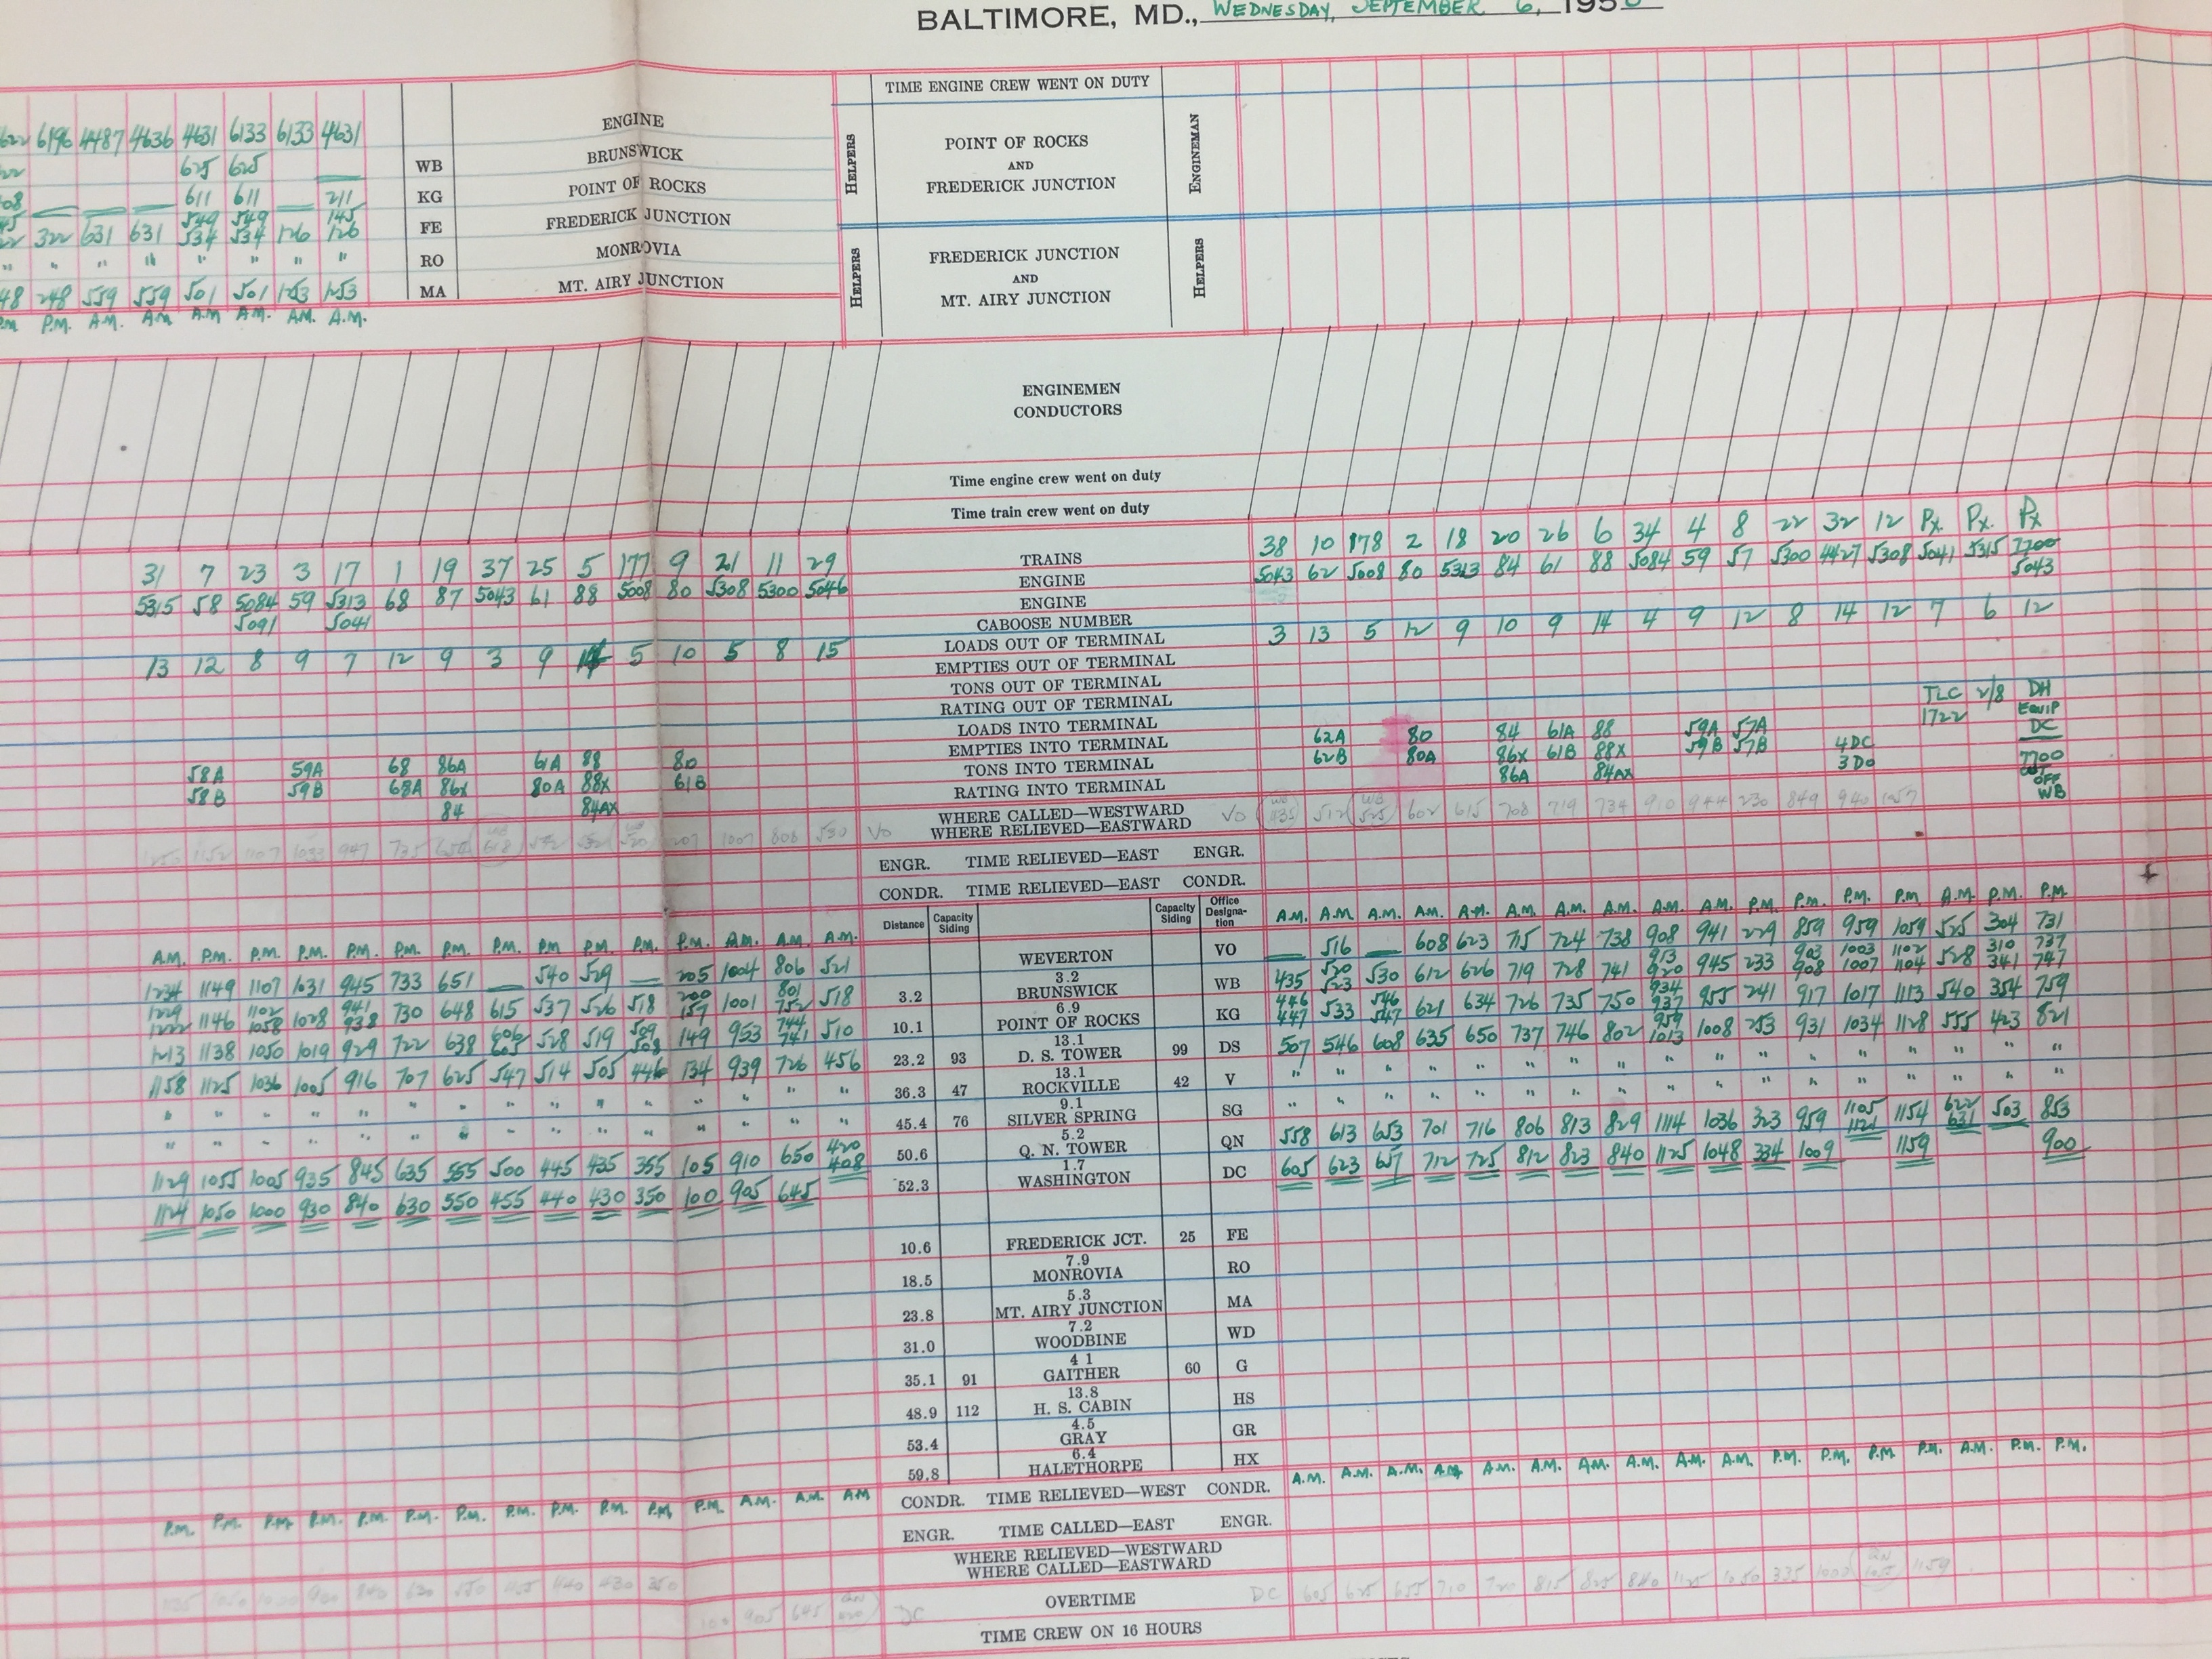 BALTIMORE, MD., WEDNESDAY, SEPTEMBER 6, 195
TIME ENGINE CREW WENT ON DUTY
6196 4487 4636 4631 6133 6133 4631 ENGINE
625 625 WB BRUNSWICK HELPERS POINT OF ROCKS ENGINEMAN
611 611 211 KG POINT OF ROCKS AND
549 549 145 FREDERICK JUNCTION
322 631 631 534 534 126 126 FE FREDERICK JUNCTION
" " " " " " " " RO MONROVIA HELPERS FREDERICK JUNCTION HELPERS
248 559 559 501 501 1253 1253 MA MT. AIRY JUNCTION AND
P.M. P.M. A.M. A.M A.M A.M. A.M. A.M. MT. AIRY JUNCTION
ENGINEMEN
CONDUCTORS
Time engine crew went on duty
Time train crew went on duty
31 7 23 3 17 1 19 37 25 5 177 9 21 11 29 TRAINS 38 10 178 2 18 20 26 6 34 4 8 22 32 12 Px. Px. Px
5315 58 5084 59 5313 68 87 5043 61 88 5008 80 5308 5300 5046 ENGINE 5043 62 5008 80 5313 84 61 88 5084 59 57 5300 4427 5308 5041 5315 7700
5091 5041 ENGINE 5043
CABOOSE NUMBER
13 12 8 9 7 12 9 3 9 14 5 10 5 8 15 LOADS OUT OF TERMINAL 3 13 5 12 9 10 9 14 4 9 12 8 14 12 7 6 12
EMPTIES OUT OF TERMINAL
TONS OUT OF TERMINAL
RATING OUT OF TERMINAL TLC 2/8 DH
LOADS INTO TERMINAL 1722 EQUIP
58A 59A 68 86A 61A 88 80 EMPTIES INTO TERMINAL 62A 80 84 61A 88 59A 57A DC
58B 59B 68A 86x 80A 88x 61B TONS INTO TERMINAL 62B 80A 86x 61B 88x 59B 57B 4DC 7700
84 84AX RATING INTO TERMINAL 86A 84AX 3DO OFF
WB
WHERE CALLED—WESTWARD
735 1007 808 530 VO WHERE RELIEVED—EASTWARD VO 1135 512 525 602 615 708 719 734 910 944 230 849 940 1057
ENGR. TIME RELIEVED—EAST ENGR.
CONDR. TIME RELIEVED—EAST CONDR.
Distance Capacity Siding Capacity Siding Office Designation
A.M. P.M. P.M. P.M. P.M. P.M. P.M. P.M. P.M P.M P.M. P.M. A.M. A.M. A.M. A.M. A.M A.M. A.M. A.M. A.M. A.M. A.M. A.M. A.M. P.M. P.M. P.M. P.M A.M. P.M. P.M
1234 1149 1107 1031 945 733 651 — 540 529 — 205 1004 806 521 WEVERTON VO — 516 — 608 623 715 724 738 908 941 229 859 959 1059 525 304 731
1229 1102 941 200 801 3.2 520 913 903 1003 1102 310 737
1222 1146 1058 1028 938 730 648 615 537 526 518 157 1001 752 518 3.2 BRUNSWICK WB 435 523 530 612 626 719 728 741 920 945 233 908 1007 1104 528 341 747
606 509 744 6.9 446 546 934
1213 1138 1050 1019 929 722 638 605 528 519 508 149 953 741 510 10.1 POINT OF ROCKS KG 447 533 547 621 634 726 735 750 937 955 241 917 1017 1113 540 354 759
13.1 959
1158 1125 1036 1005 916 707 625 547 514 505 446 134 939 726 456 23.2 93 D. S. TOWER 99 DS 507 546 608 635 650 737 746 802 1013 1008 253 931 1034 1128 555 423 821
13.1
" " " " " " " " " " " " " " " 36.3 47 ROCKVILLE 42 V " " " " " " " " " " " " " " " " "
9.1
" " " " " " " " " " " " " " " 45.4 76 SILVER SPRING SG " " " " " " " " " " " " " " " " "
420 5.2 1105 622
1129 1055 1005 935 845 635 555 500 445 435 355 105 910 650 408 50.6 Q. N. TOWER QN 558 613 653 701 716 806 813 829 1114 1036 323 959 1121 1154 631 503 853
1.7
1124 1050 1000 930 840 630 550 455 440 430 350 100 905 645 52.3 WASHINGTON DC 605 623 657 712 725 812 823 840 1125 1048 334 1009 1159 900
10.6 FREDERICK JCT. 25 FE
7.9
18.5 MONROVIA RO
5.3
23.8 MT. AIRY JUNCTION MA
7.2
31.0 WOODBINE WD
4 1
35.1 91 GAITHER 60 G
13.8
48.9 112 H. S. CABIN HS
4.5
53.4 GRAY GR
6.4
59.8 HALETHORPE HX
P.M. P.M. P.M. P.M. P.M. P.M. P.M. P.M. P.M. P.M. P.M. P.M. A.M. A.M. AM CONDR. TIME RELIEVED—WEST CONDR. A.M. A.M. A.M. A.M. A.M. A.M. A.M. A.M. A.M. A.M. P.M. P.M. P.M P.M. A.M. P.M. P.M.
ENGR. TIME CALLED—EAST ENGR.
WHERE RELIEVED—WESTWARD
WHERE CALLED—EASTWARD
840 630 550 455 440 430 350 905 645 DC OVERTIME DC 605 625 655 710 720 815 825 840 1125 1050 335 1159
TIME CREW ON 16 HOURS